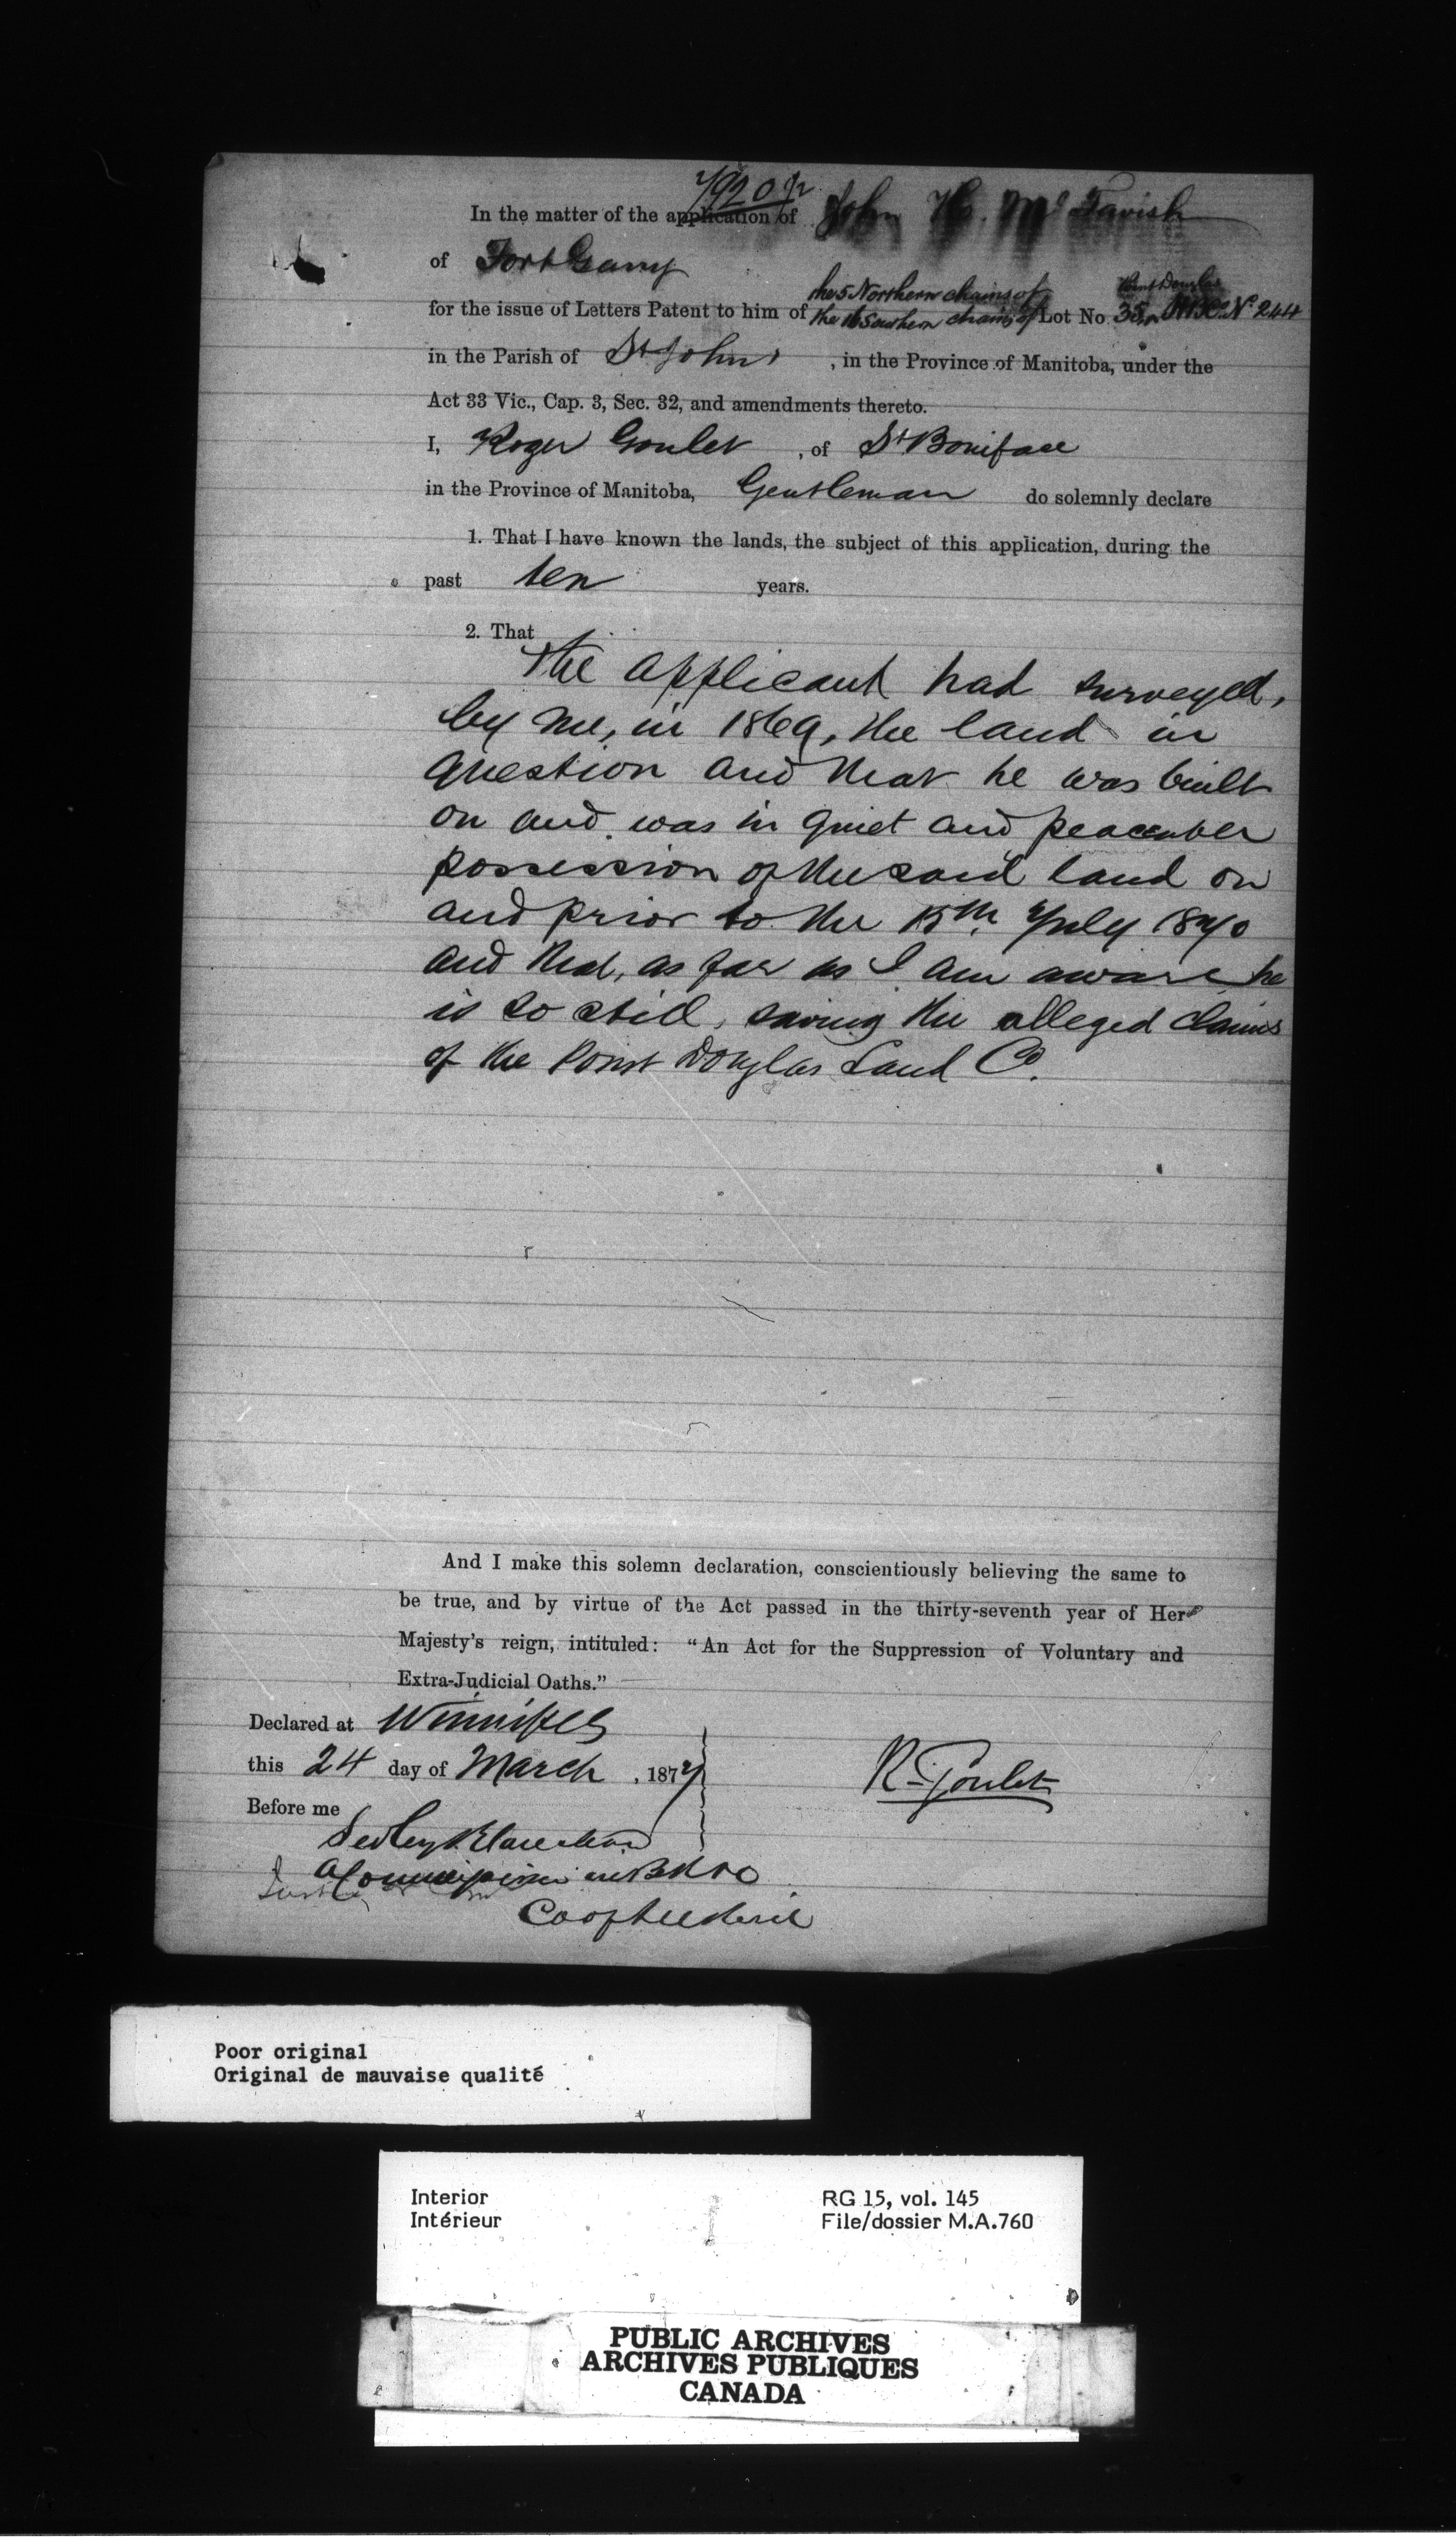 In the matter of the application of John H. McTavish
of Fort Garry
the 5 Northern chains of
for the issue of Letters Patent to him of the 16 Southern chains of Lot No 35, No 244
in the Parish of St Johns , in the Province of Manitoba, under the
Act 33 Vic., Cap. 3, Sec. 32, and amendments thereto.
I, Roger Goulet , of St Boniface
in the Province of Manitoba, Gentleman do solemnly declare
1. That I have known the lands, the subject of this application, during the
past ten years.
2. That
the applicant had surveyed,
by me, in 1869, the land in
question and that he was built
on and was in quiet and peaceable
possession of the said land on
and prior to the 15th July 1870
and that, as far as I am aware he
is so still, saving the alleged claims
of the Point Douglas Land Co.
And I make this solemn declaration, conscientiously believing the same to
be true, and by virtue of the Act passed in the thirty-seventh year of Her
Majesty's reign, intituled: "An Act for the Suppression of Voluntary and
Extra-Judicial Oaths."
Declared at Winnipeg
this 24 day of March , 1877
R. Goulet
Before me
Sedley Blanchard
A Commissioner in B R &c
Poor original
Original de mauvaise qualité
Interior
Intérieur
RG 15, vol. 145
File/dossier M.A.760
PUBLIC ARCHIVES
ARCHIVES PUBLIQUES
CANADA